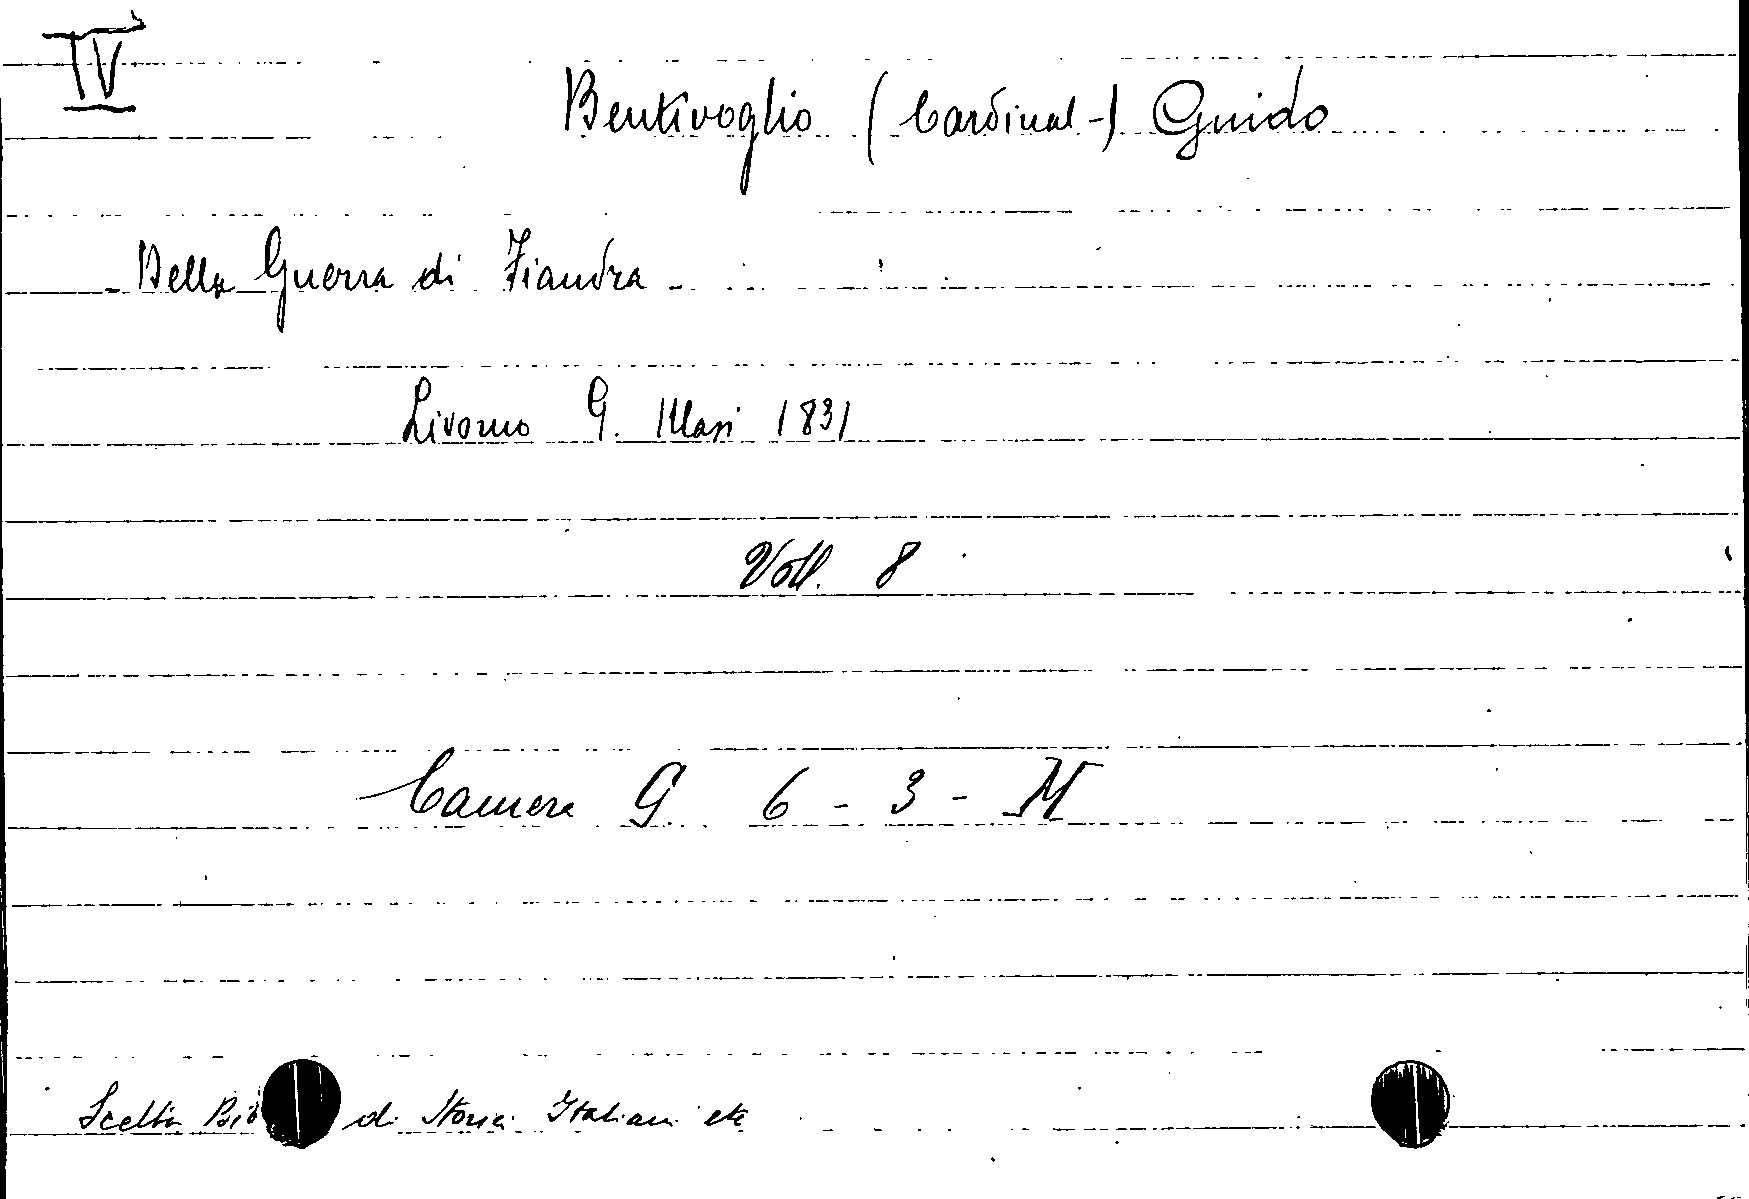 IV
Bentivoglio (Cardinal-) Guido
- Della Guerra di Fiandra -
Livorno G. Masi 1831
Voll. 8
Camera G 6 - 3 - M
Scelta di Storici Italiani etc